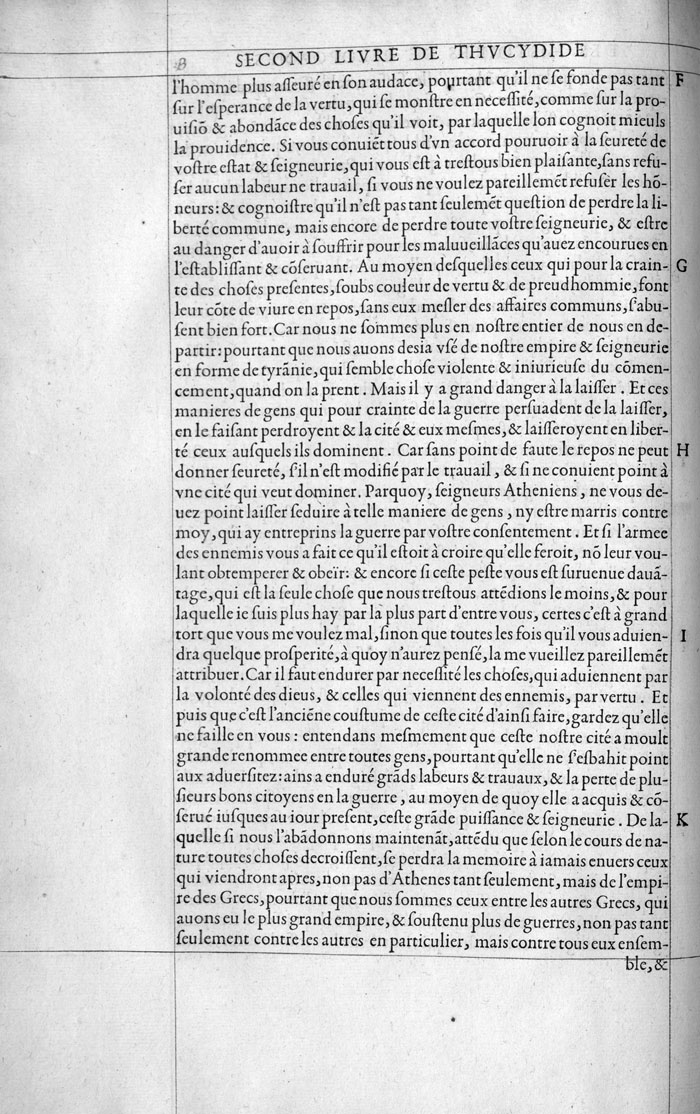 SECOND LIVRE DE THVCYDIDE
l'homme plus aſſeuré en ſon audace, pourtant qu'il ne ſe fonde pas tant F
ſur l'eſperance de la vertu, qui ſe monſtre en neceſſité, comme ſur la pro-
uiſiõ & abondãce des choſes qu'il voit, par laquelle lon cognoit mieuls
la prouidence. Si vous conuiẽt tous d'vn accord pouruoir à la ſeureté de
voſtre eſtat & ſeigneurie, qui vous eſt à treſtous bien plaiſante, ſans refu-
ſer aucun labeur ne trauail, ſi vous ne voulez pareillemẽt refuſer les hõ-
neurs: & cognoiſtre qu'il n'eſt pas tant ſeulemẽt queſtion de perdre la li-
berté commune, mais encore de perdre toute voſtre ſeigneurie, & eſtre
au danger d'auoir à ſouffrir pour les maluueillãces qu'auez encourues en
l'eſtabliſſant & cõſeruant. Au moyen deſquelles ceux qui pour la crain- G
te des choſes preſentes, ſoubs couleur de vertu & de preudhommie, font
leur cõte de viure en repos, ſans eux meſler des affaires communs, ſ'abu-
ſent bien fort. Car nous ne ſommes plus en noſtre entier de nous en de-
partir: pourtant que nous auons desia vſé de noſtre empire & ſeigneurie
en forme de tyrãnie, qui ſemble choſe violente & iniurieuſe du cõmen-
cement, quand on la prent. Mais il y a grand danger à la laiſſer. Et ces
manieres de gens qui pour crainte de la guerre perſuadent de la laiſſer,
en le faiſant perdroyent & la cité & eux meſmes, & laiſſeroyent en liber-
té ceux auſquels ils dominent. Car ſans point de faute le repos ne peut H
donner ſeureté, ſ'il n'eſt modifié par le trauail, & ſi ne conuient point à
vne cité qui veut dominer. Parquoy, ſeigneurs Atheniens, ne vous de-
uez point laiſſer ſeduire à telle maniere de gens, ny eſtre marris contre
moy, qui ay entreprins la guerre par voſtre conſentement. Et ſi l'armee
des ennemis vous a fait ce qu'il eſtoit à croire qu'elle feroit, nõ leur vou-
lant obtemperer & obeïr: & encore ſi ceſte peſte vous eſt ſuruenue dauã-
tage, qui eſt la ſeule choſe que nous treſtous attẽdions le moins, & pour
laquelle ie ſuis plus hay par la plus part d'entre vous, certes c'eſt à grand
tort que vous me voulez mal, ſinon que toutes les fois qu'il vous aduien- I
dra quelque proſperité, à quoy n'aurez penſé, la me vueillez pareillemẽt
attribuer. Car il faut endurer par neceſſité les choſes, qui aduiennent par
la volonté des dieus, & celles qui viennent des ennemis, par vertu. Et
puis que c'eſt l'anciẽne couſtume de ceſte cité d'ainſi faire, gardez qu'elle
ne faille en vous: entendans meſmement que ceſte noſtre cité a moult
grande renommee entre toutes gens, pourtant qu'elle ne ſ'eſbahit point
aux aduerſitez: ains a enduré grãds labeurs & trauaux, & la perte de plu-
ſieurs bons citoyens en la guerre, au moyen de quoy elle a acquis & cõ-
ſerué iuſques au iour preſent, ceſte grãde puiſſance & ſeigneurie. De la- K
quelle ſi nous l'abãdonnons maintenãt, attẽdu que ſelon le cours de na-
ture toutes choſes decroiſſent, ſe perdra la memoire à iamais enuers ceux
qui viendront apres, non pas d'Athenes tant ſeulement, mais de l'empi-
re des Grecs, pourtant que nous ſommes ceux entre les autres Grecs, qui
auons eu le plus grand empire, & ſouſtenu plus de guerres, non pas tant
ſeulement contre les autres en particulier, mais contre tous eux enſem-
ble, &